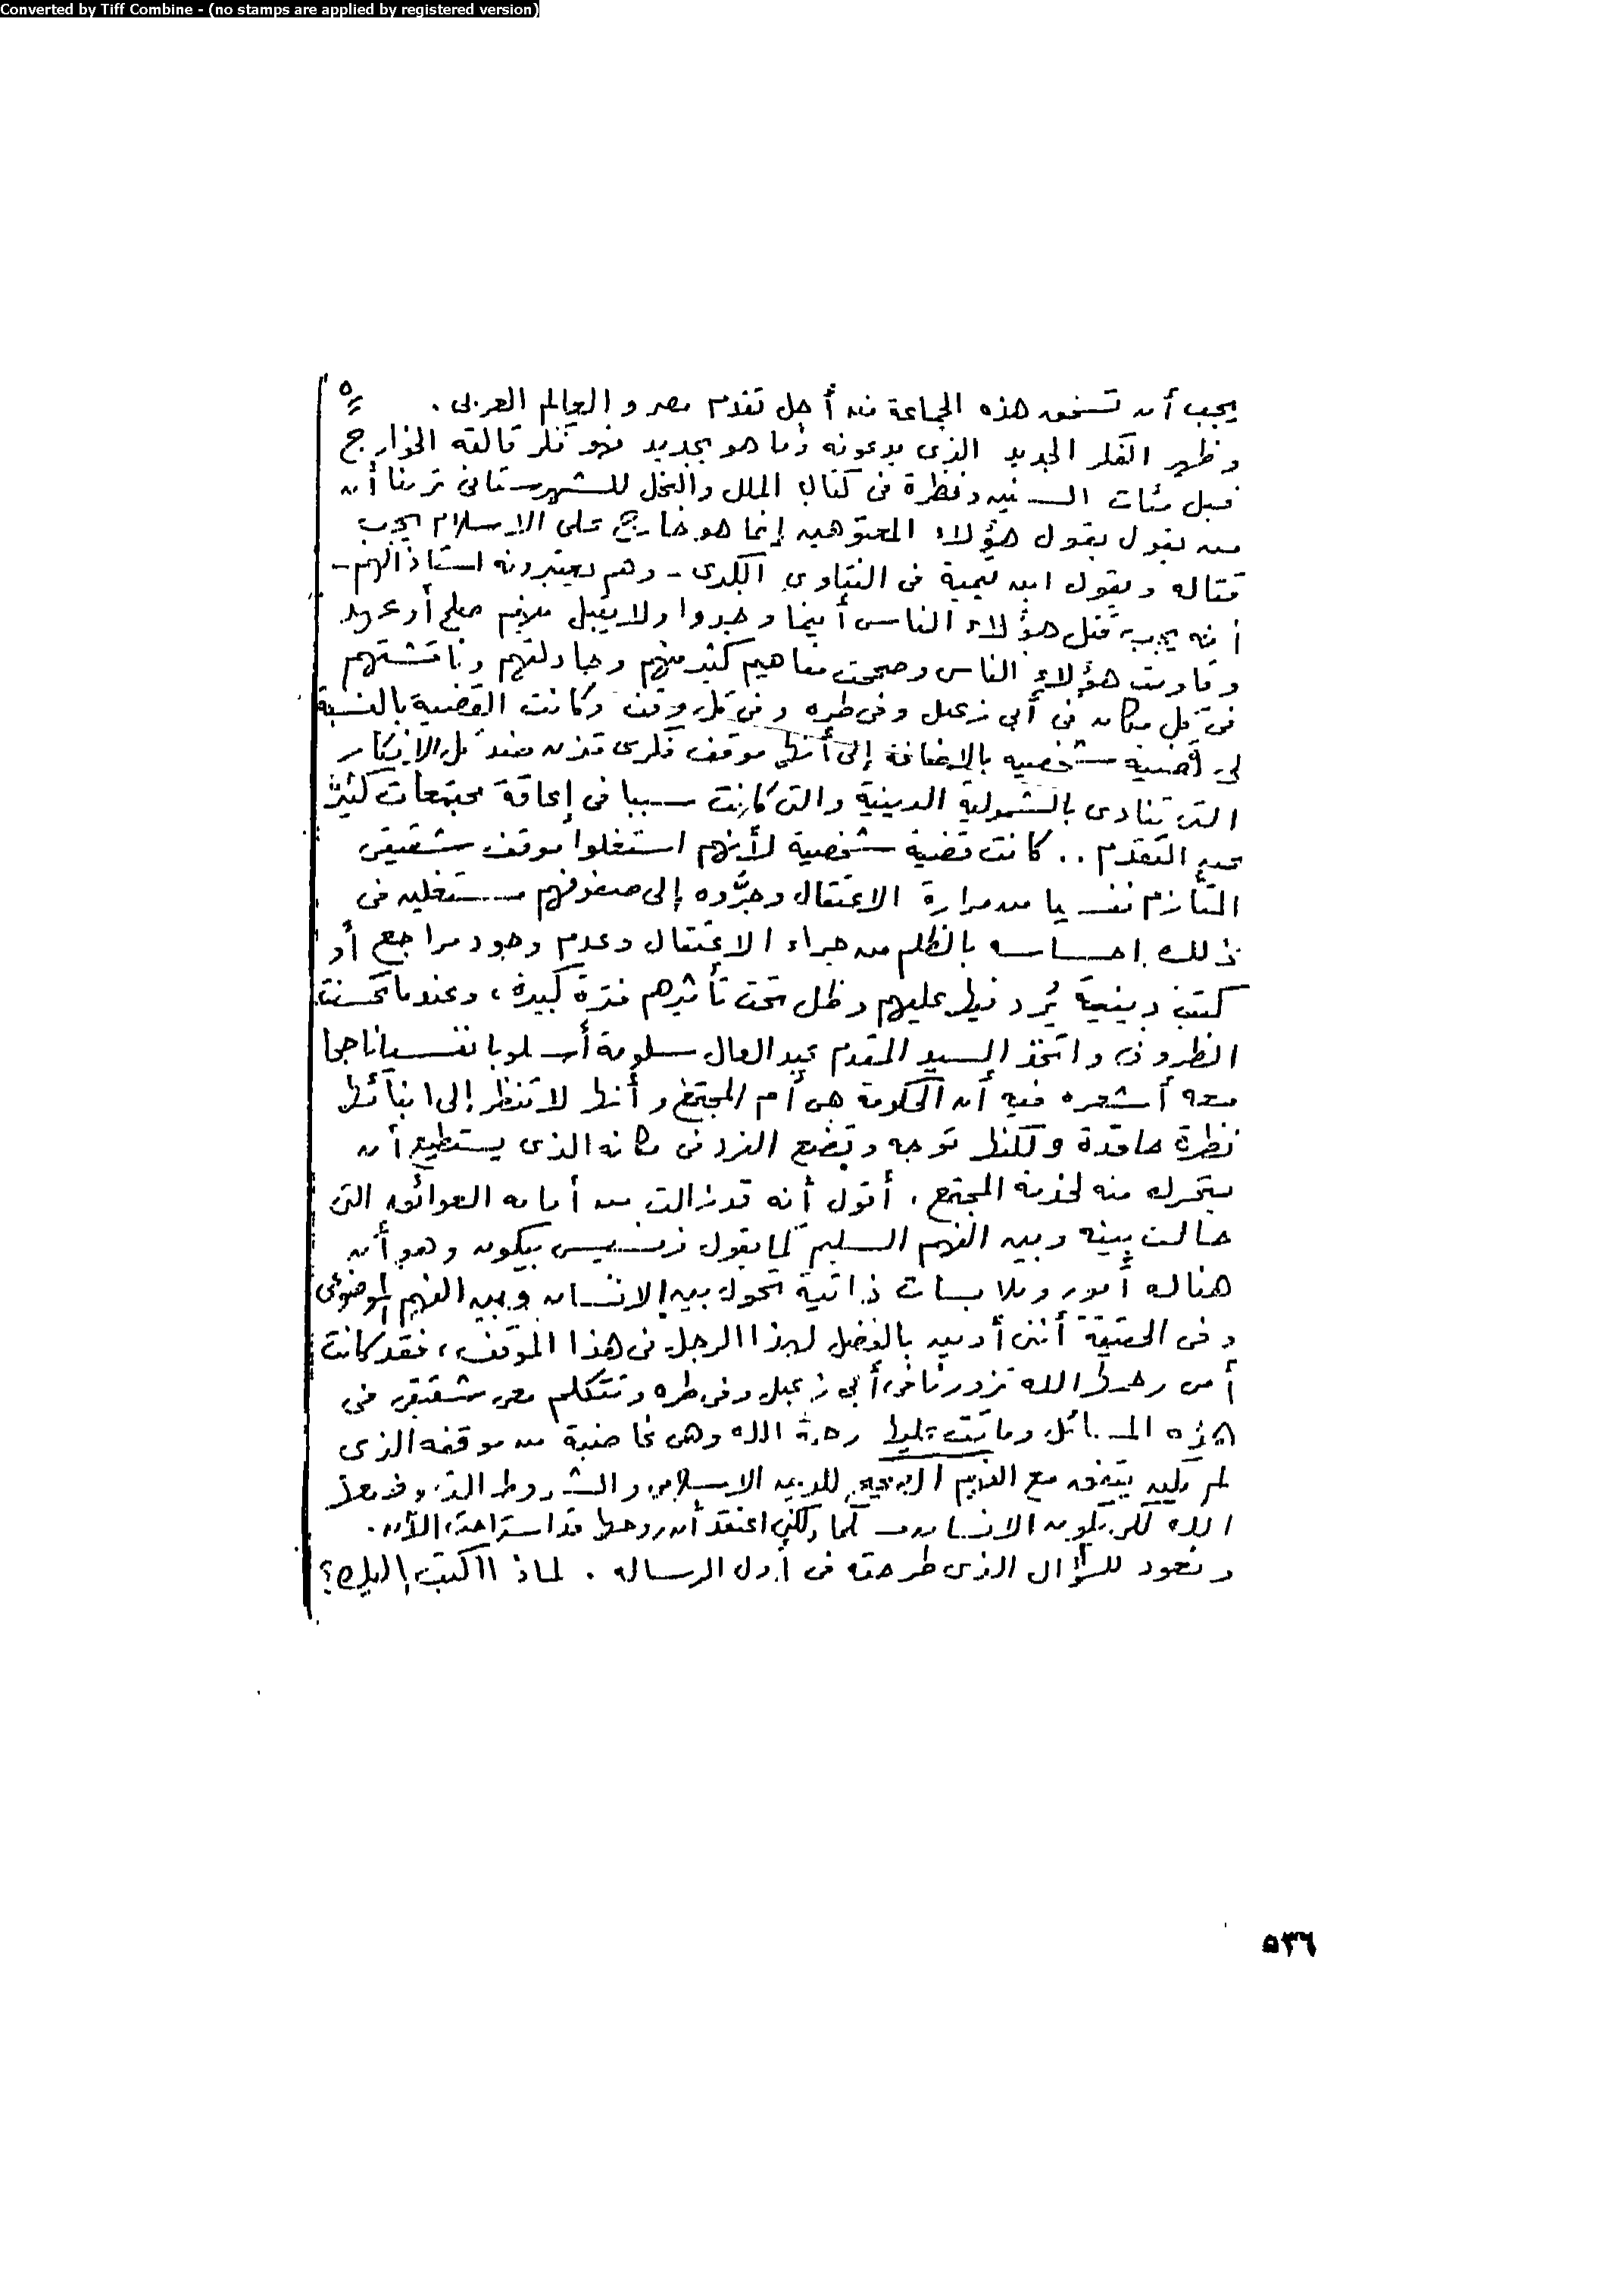 Converted by Tiff Combine - (no stamps are applied by registered version)
٥
يجب أن تسحق هذه الجماعة من أجل تقدم مصر والعالم العربى .
وظهر الفكر الجديد الذى يدعونه وما هو بجديد فهو فكر قالته الخوارج
قبل مئات السنين ونظرة فى كتاب الملل والنحل للشهرستانى ترينا أن
من يقول بقول هؤلاء المعتوهين إنما هو خارج على الاسلام يجب
قتاله ويقول ابن تيمية فى الفتاوى الكبرى - وهم يعتبرونه استاذا لهم -
أنه يجب قتل هؤلاء الناس أينما وجدوا ولا يقبل منهم صلح أو عهد
وقاومت هؤلاء الناس وصححت مفاهيم كثير منهم وجادلتهم وناقشتهم
فى كل مكان فى أبى زعبل وفى طره وفى كل وقت وكانت القضية بالنسبة
لى قضية شخصية بالاضافة إلى أنها موقف فكرى ضد كل الافكار
التى تنادى بالشمولية الدينية والتى كانت سببا فى إعاقة مجتمعات كثيرة
عن التقدم .. كانت قضية شخصية لأنهم استغلوا موقف شقيقى
المتأزم نفسيا من مرارة الاعتقال وجروه إلى صفوفهم مستغلين فى
ذلك احساسه بالظلم من جراء الاعتقال وعدم وجود مراجع أو
كتب دينية يرد فيها عليهم وظل تحت تأثيرهم فترة كبيرة ، وعندما تحسنت
الظروف واتخذ السيد المقدم عبد العال سلومة أسلوبا نفسيا ناجحا
معه أشعره فيه أن الحكومة هى أم المجتمع وأنها لا تنظر إلى ابنائها
نظرة حاقدة ولكنها توجه وتضع الفرد فى مكانه الذى يستطيع أن
يتحرك منه لخدمة المجتمع ، أقول أنه قد زالت من أمامه العوائق التى
حالت بينه وبين الفهم السليم كما يقول فرنسيس بيكون وهو أن
هناك أمور وملابسات ذاتية تحول بين الانسان وبين الفهم الموضوعى
وفى الحقيقة أننى أدين بالفضل لهذا الرجل فى هذا الموقف ، فقد كانت
أمى رحمها الله تزورنا فى أبى زعبل وفى طره وتتكلم مع شقيقى فى
هذه المسائل وماتت عليها رحمة الله وهى غاضبة من موقفه الذى
لم يكن يتفق مع الفهم الصحيح للدين الاسلامى والشروط التى وضعها
الله لكى يكون الانسان مسلما ولكنى اعتقد أن روحها قد استراحت الآن .
ونعود للسؤال الذى طرحته فى أول الرسالة . لماذا اكتب إليك ؟
٥٣٦